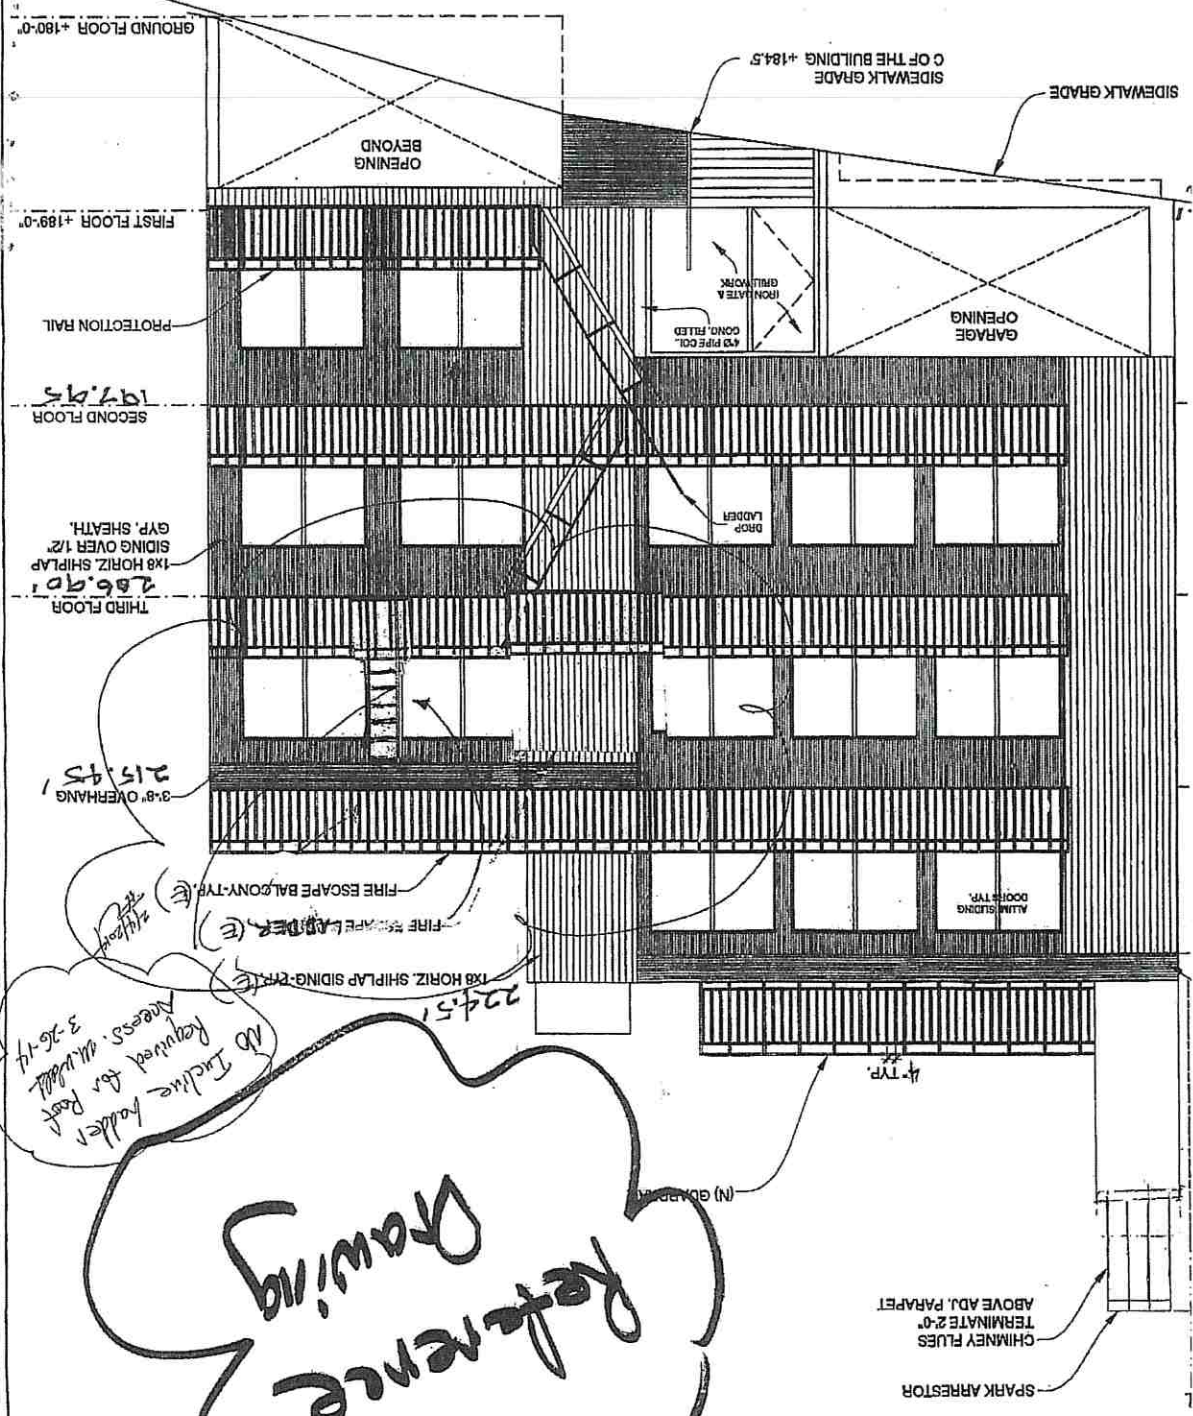 SPARK ARRESTOR
CHIMNEY FLUES
TERMINATE 2'-0"
ABOVE ADJ. PARAPET
Reference
Drawing
4" TYP.
No Incline ladder
Required for Roof
Access.
3-26-14
224.5'
1X8 HORIZ. SHIPLAP SIDING-TYP. (E)
FIRE ESCAPE LADDER, (E)
FIRE ESCAPE BALCONY-TYP. (E)
ALUM. SLIDING
DOORS TYP.
3'-8" OVERHANG
215.45'
THIRD FLOOR
206.90'
1x8 HORIZ. SHIPLAP
SIDING OVER 1/2"
GYP. SHEATH.
DROP
LADDER
SECOND FLOOR
197.95
GARAGE
OPENING
4"Ø PIPE COL.
CONC. FILLED
IRON GATE &
GRILL WORK
PROTECTION RAIL
FIRST FLOOR +189'-0"
OPENING
BEYOND
SIDEWALK GRADE
SIDEWALK GRADE
C OF THE BUILDING +184.5'
GROUND FLOOR +180'-0"